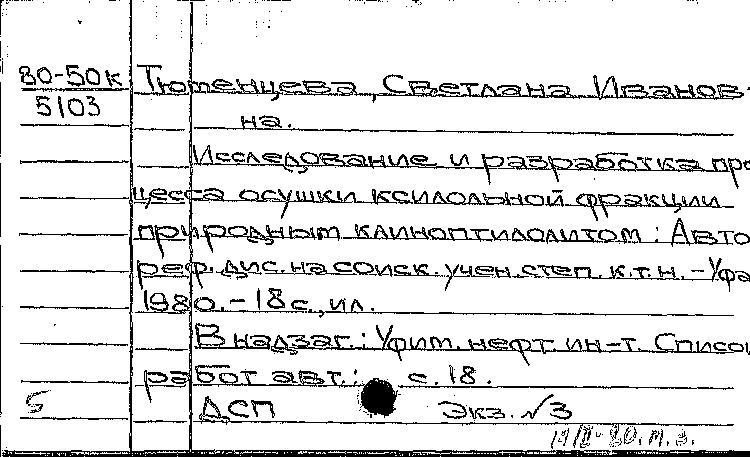 80-50к
5103
Тютенцева, Светлана Иванов-
на.
Исследование и разработка про
цесса осушки ксилольной фракции
природным клиноптилолитом: Авто
реф. дис. на соиск. учен. степ. к.т.н. - Уфа
1980. - 18 с., ил.
В надзаг.: Уфим. нефт. ин-т. Список
работ авт.: с. 18.
5
ДСП Экз. №3